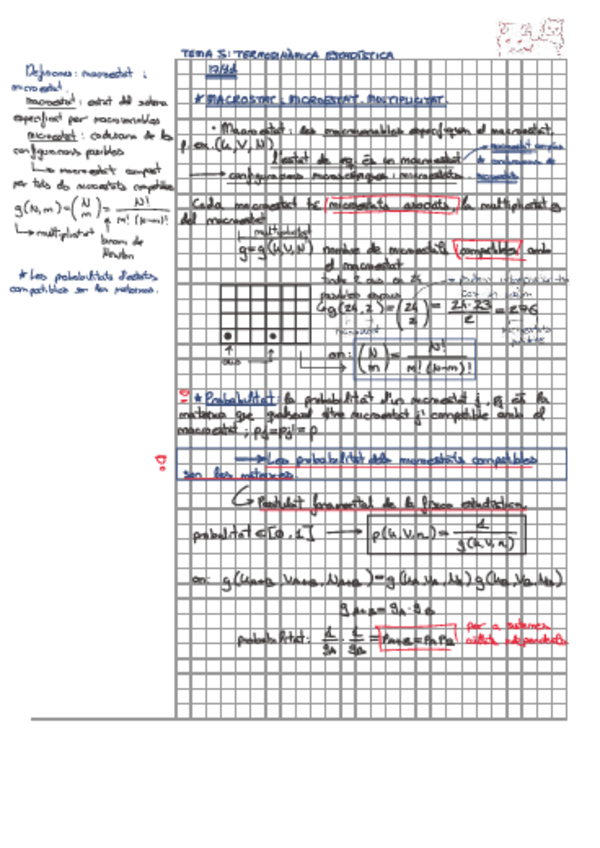 TEMA 5: TERMODINÀMICA ESTADÍSTICA
Definicions: macroestat i
microestat.
macroestat: estat del sistema
especificat per macrovariables
microestat: cadascuna de les
configuracions possibles
macroestat
per tots els microestats compatibles
g(N,m) = (N m) = N! / m!(N-m)!
multiplicitat
binomi de
Newton
* Les probabilitats d'estats
compatibles són les mateixes.
* MACROSTAT i MICROESTAT. MULTIPLICITAT.
· Macroestat: les macrovariables especifiquen el macroestat,
p. ex. (U,V,N)
l'estat de eq. és un macroestat
configuracions microscòpiques: microestats.
Cada macroestat té microestats associats, la multiplicitat g
del macroestat
multiplicitat
g = g(U,V,N) nombre de microestats compatibles amb
el macroestat
2 ous en 24
possibles espais
g(24,2) = (24 2) = 24·23 / 2 = 276
ous
on: (N m) = N! / m!(N-m)!
* Probabilitat: la probabilitat d'un microestat j, pj és la
mateixa que qualsevol altre microestat j' compatible amb el
macroestat; pj = pj' = p
Les probabilitats dels microestats compatibles
són les mateixes.
Postulat fonamental de la física estadística
probabilitat ∈ [0,1] → p(U,V,N) = 1 / g(U,V,N)
on: g(UA+B, VA+B, NA+B) = g(UA,VA,NA) g(UB,VB,NB)
gA+B = gA · gB
probabilitat: 1/gA · 1/gB = pA+B = pA pB
per a sistemes
aïllats independents